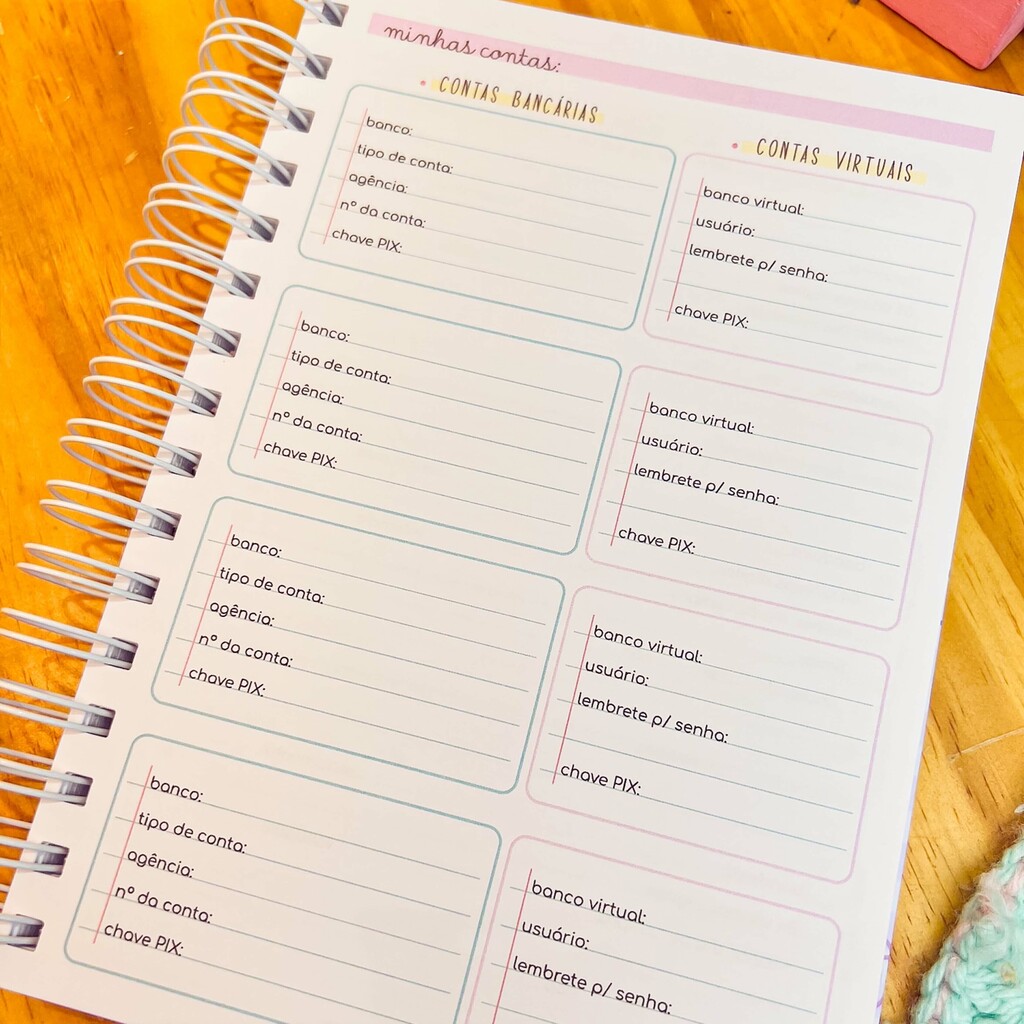 minhas contas:
CONTAS BANCÁRIAS
banco:
tipo de conta:
agência:
nº da conta:
chave PIX:
banco:
tipo de conta:
agência:
nº da conta:
chave PIX:
banco:
tipo de conta:
agência:
nº da conta:
chave PIX:
banco:
tipo de conta:
agência:
nº da conta:
chave PIX:
CONTAS VIRTUAIS
banco virtual:
usuário:
lembrete p/ senha:
chave PIX:
banco virtual:
usuário:
lembrete p/ senha:
chave PIX:
banco virtual:
usuário:
lembrete p/ senha:
chave PIX:
banco virtual:
usuário:
lembrete p/ senha: